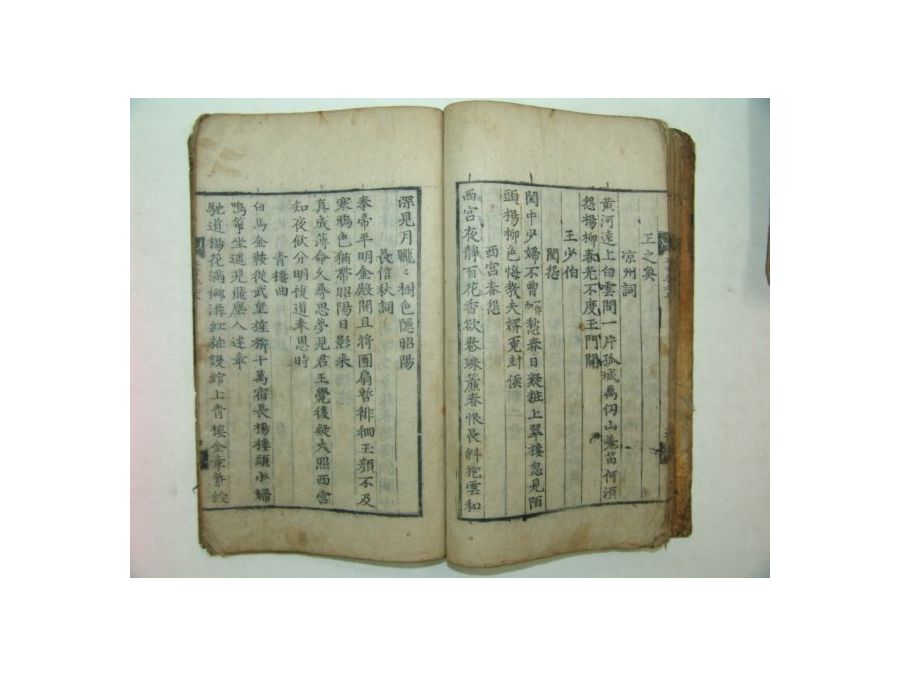 王之奐
涼州詞
黃河遠上白雲間一片孤城萬仞山羌笛何須
怨楊柳春光不度玉門關
王少伯
閨怨
閨中少婦不曾一作知愁春日凝粧上翠樓忽見陌
頭楊柳色悔教夫婿覓封侯
西宮春怨
西宮夜靜百花香欲卷珠簾春恨長斜抱雲和
深見月朧〻樹色隱昭陽
長信秋詞
奉帚平明金殿開且將團扇暫徘徊玉顏不及
寒鴉色猶帶昭陽日影來
真成薄命久尋思夢見君王覺後疑火照西宮
知夜飲分明複道奉恩時
青樓曲
白馬金鞍從武皇旌旂十萬宿長楊樓頭小婦
鳴箏坐遙見飛塵入建章
馳道楊花滿御溝紅粧謾綰上青樓金章紫綬